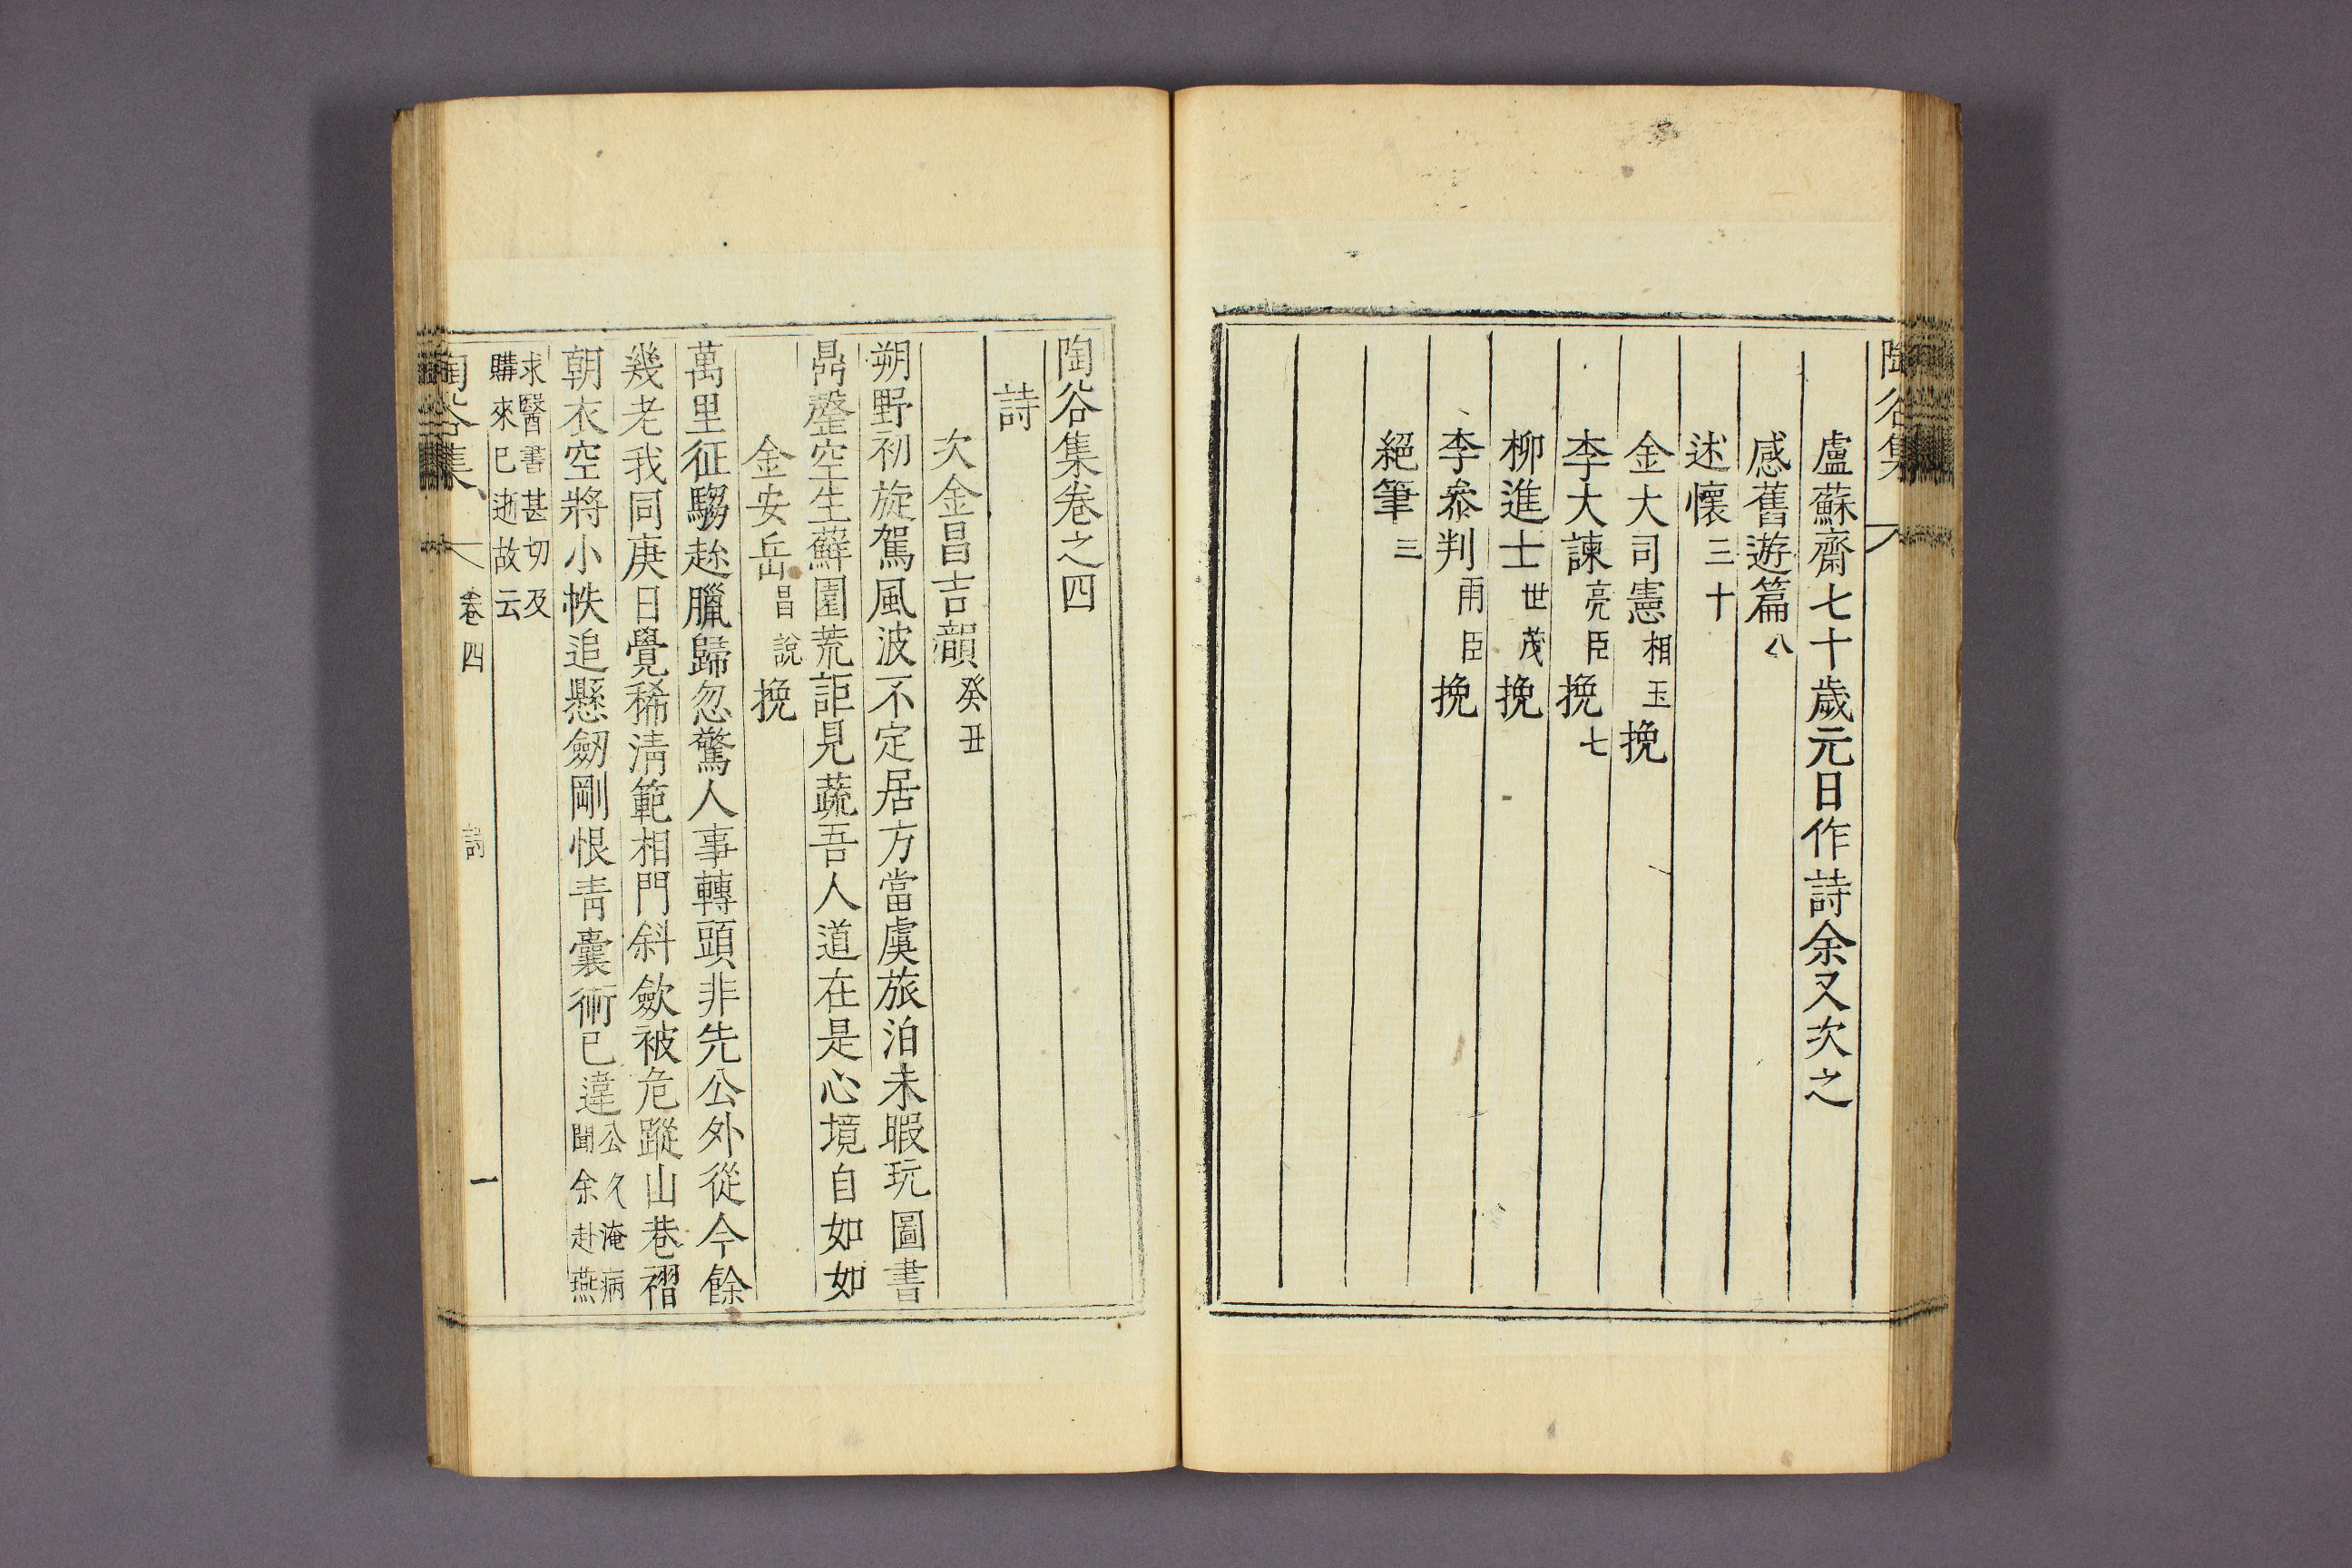 陶谷集
盧蘇齋七十歲元日作詩余又次之
感舊遊篇八
述懷三十
金大司憲相玉挽
李大諫亮臣挽七
柳進士世茂挽
李叅判雨臣挽
絕筆三
陶谷集卷之四
詩
次金昌吉韻癸丑
朔野初旋駕風波不定居方當虞旅泊未暇玩圖書
鼎罄空生蘚園荒詎見蔬吾人道在是心境自如如
金安岳昌說挽
萬里征騶趂臘歸忽驚人事轉頭非先公外從今餘
幾老我同庚日覺稀淸範相門斜歛被危蹤山巷褶
朝衣空將小帙追懸劒剛恨靑囊術已違公久淹病
聞余赴燕
求醫書甚切及
購來已逝故云
陶谷集
卷四
詩
一